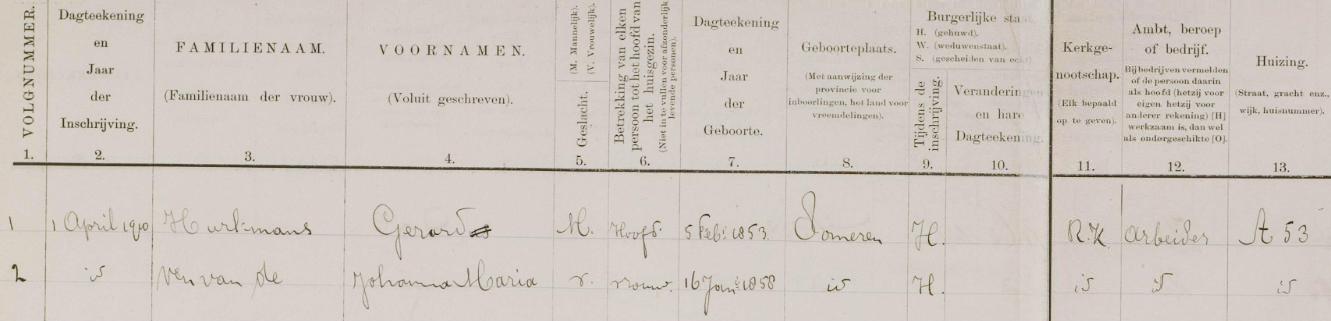 VOLGNUMMER.
1.
Dagteekening
en
Jaar
der
Inschrijving.
2.
FAMILIENAAM.
(Familienaam der vrouw).
3.
VOORNAMEN.
(Voluit geschreven).
4.
Geslacht.
(M. Mannelijk).
(V. Vrouwelijk).
5.
Betrekking van elken
persoon tot het hoofd van
het huisgezin.
(Niet in te vullen voor afzonderlijk
levende personen).
6.
Dagteekening
en
Jaar
der
Geboorte.
7.
Geboorteplaats.
(Met aanwijzing der
provincie voor
inboorlingen, het land voor
vreemdelingen).
8.
Burgerlijke staat
H. (gehuwd).
W. (weduwenstaat).
S. (gescheiden van echt)
Tijdens de
inschrijving.
9.
Veranderingen
en hare
Dagteekening.
10.
Kerkge-
nootschap.
(Elk bepaald
op te geven).
11.
Ambt, beroep
of bedrijf.
Bij bedrijven vermelden
of de persoon daarin
als hoofd (hetzij voor
eigen hetzij voor
anderer rekening) [H]
werkzaam is, dan wel
als ondergeschikte [O].
12.
Huizing.
(Straat, gracht enz.,
wijk, huisnummer).
13.
1 1 April 1910 Hurkmans Gerard M. Hoofd. 5 Feb: 1853 Someren H. R.K arbeider A 53
2 id Ven van de Johanna Maria v. vrouw. 16 Jan: 1858 id H. id id id